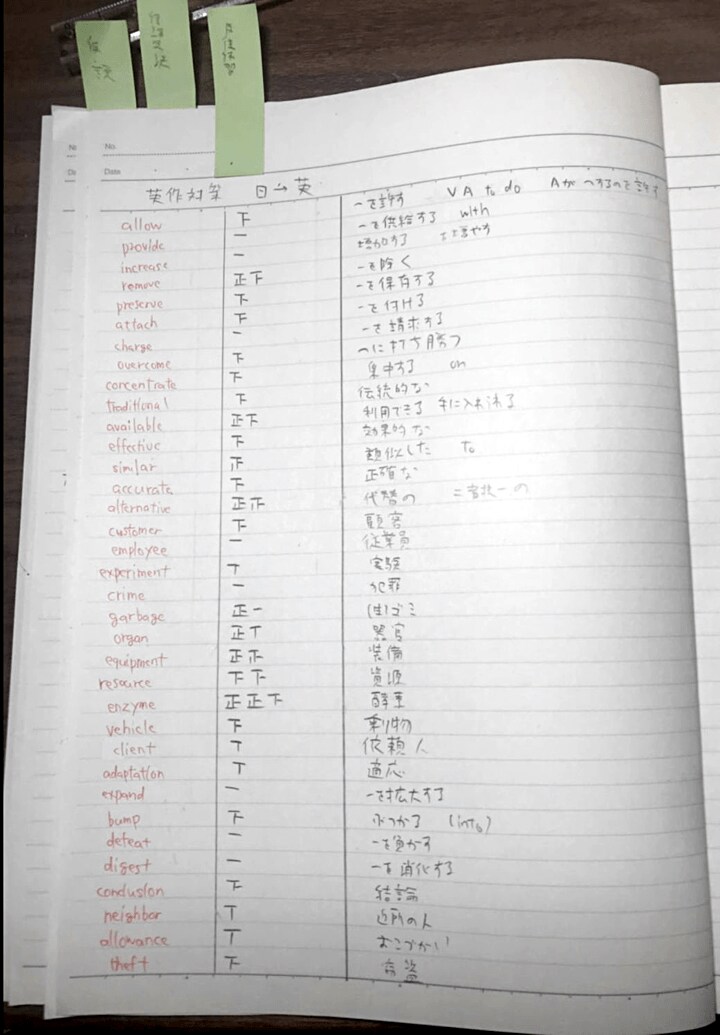 仮説
月後復習
No.
No.
Date
英作対策 日→英
allow 下 ~を許す V A to do Aが~するのを許す
provide 一 ~を供給する with
increase 一 増加する を増やす
remove 正下 ~を除く
preserve 下 ~を保存する
attach 下 ~を付ける
charge 一 ~を請求する
overcome 下 ~に打ち勝つ
concentrate 下 集中する on
traditional 下 伝統的な
available 正下 利用できる 手に入れ得る
effective 下 効果的な
similar 正 類似した to
accurate 下 正確な
alternative 正正 代替の 二者択一の
customer 下 顧客
employee 一 従業員
experiment T 実験
crime 一 犯罪
garbage 正一 (生)ゴミ
organ 正T 器官
equipment 正正 装備
resource 下下 資源
enzyme 正正下 酵素
vehicle 下 乗り物
client T 依頼人
adaptation T 適応
expand 一 ~を拡大する
bump 下 ぶつかる (into)
defeat 一 ~を負かす
digest 一 ~を消化する
conclusion 下 結論
neighbor T 近所の人
allowance T おこづかい
theft 下 窃盗